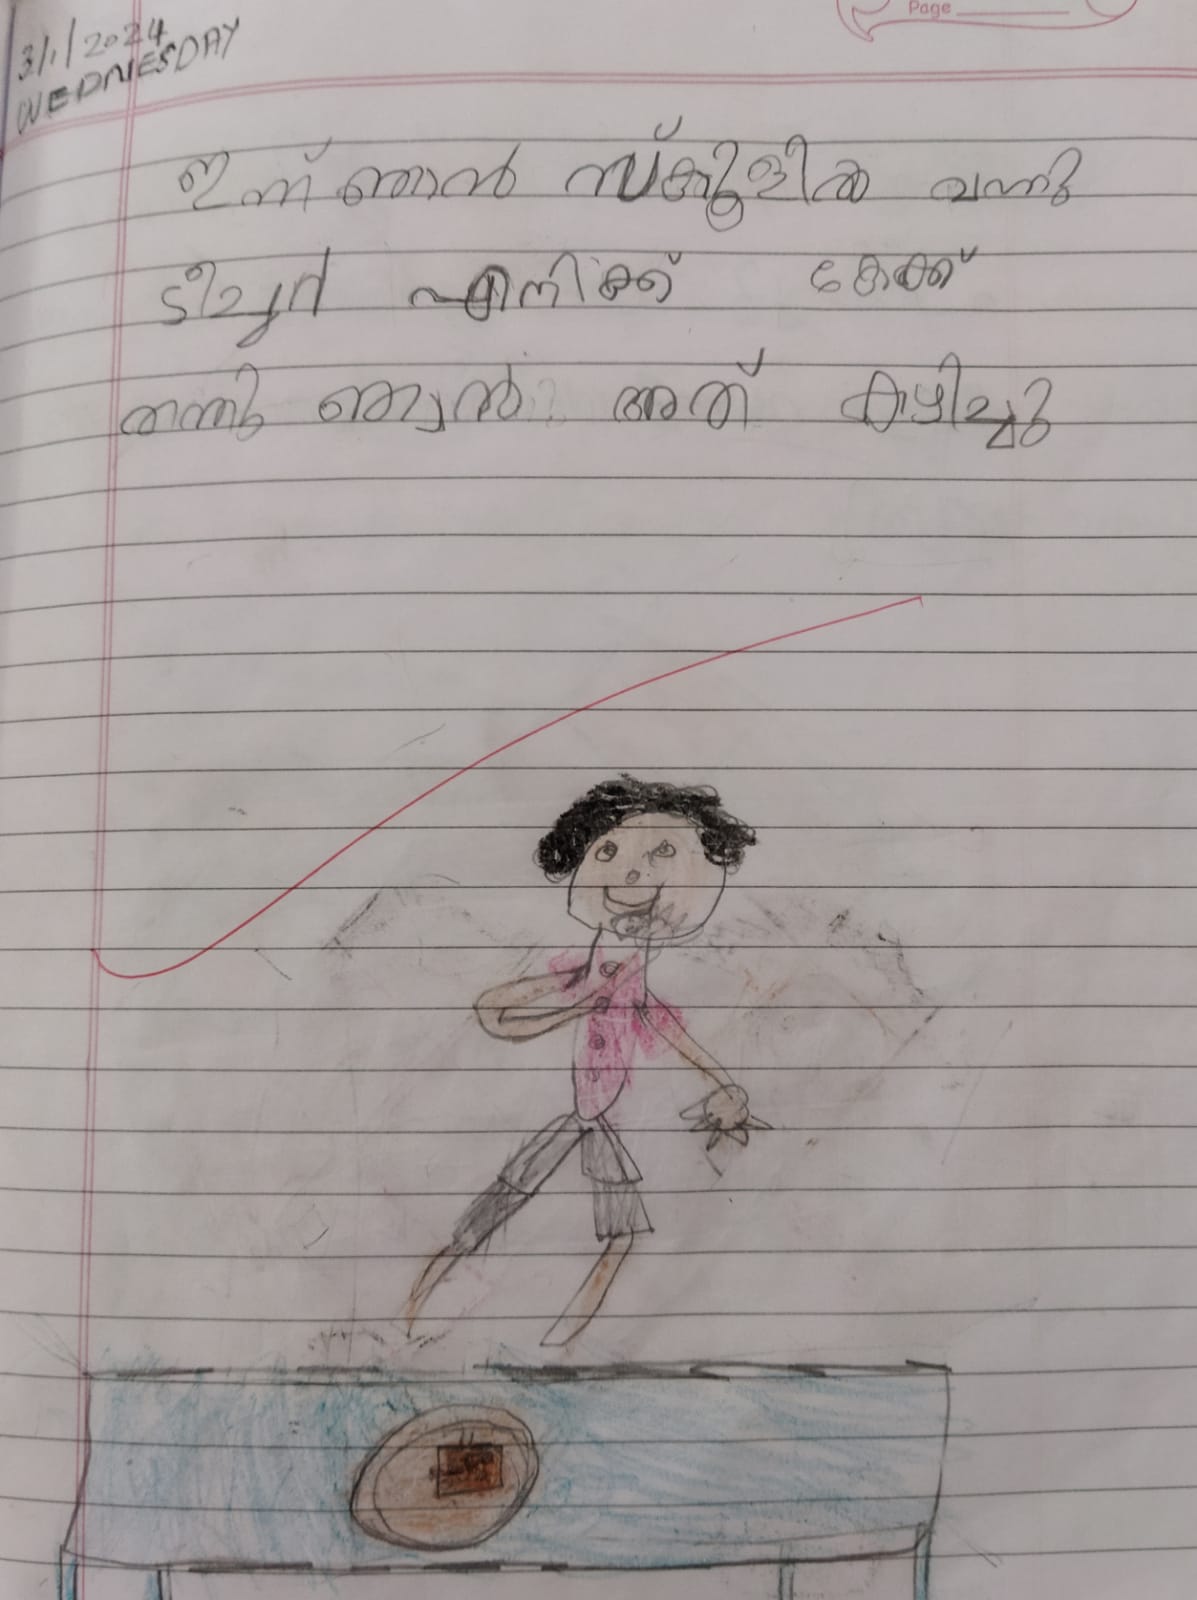 Page
3/1/2024
WEDNESDAY
ഇന്ന് ഞാൻ സ്കൂളിൽ വന്നു
ടീച്ചർ എനിക്ക് കേക്ക്
തന്നു ഞാൻ അത് കഴിച്ചു